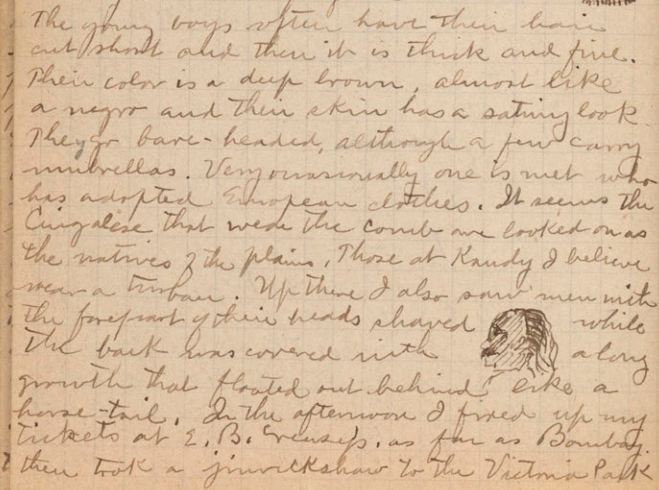 The young boys often have their hair
cut short and then it is thick and fine.
Their color is a deep brown, almost like
a negro and their skin has a satiny look.
They go bare-headed, although a few carry
umbrellas. Very occasionally one is met who
has adopted European clothes. It seems the
Cingalese that wear the comb are looked on as
the natives of the plains, Those at Kandy I believe
wear a turban. Up there I also saw men with
the forepart of their heads shaved while
the back was covered with a long
growth that floated out behind like a
horse-tail. In the afternoon I fixed up my
tickets at E. B. as far as Bombay.
then took a jinrickshaw to the Victoria Park